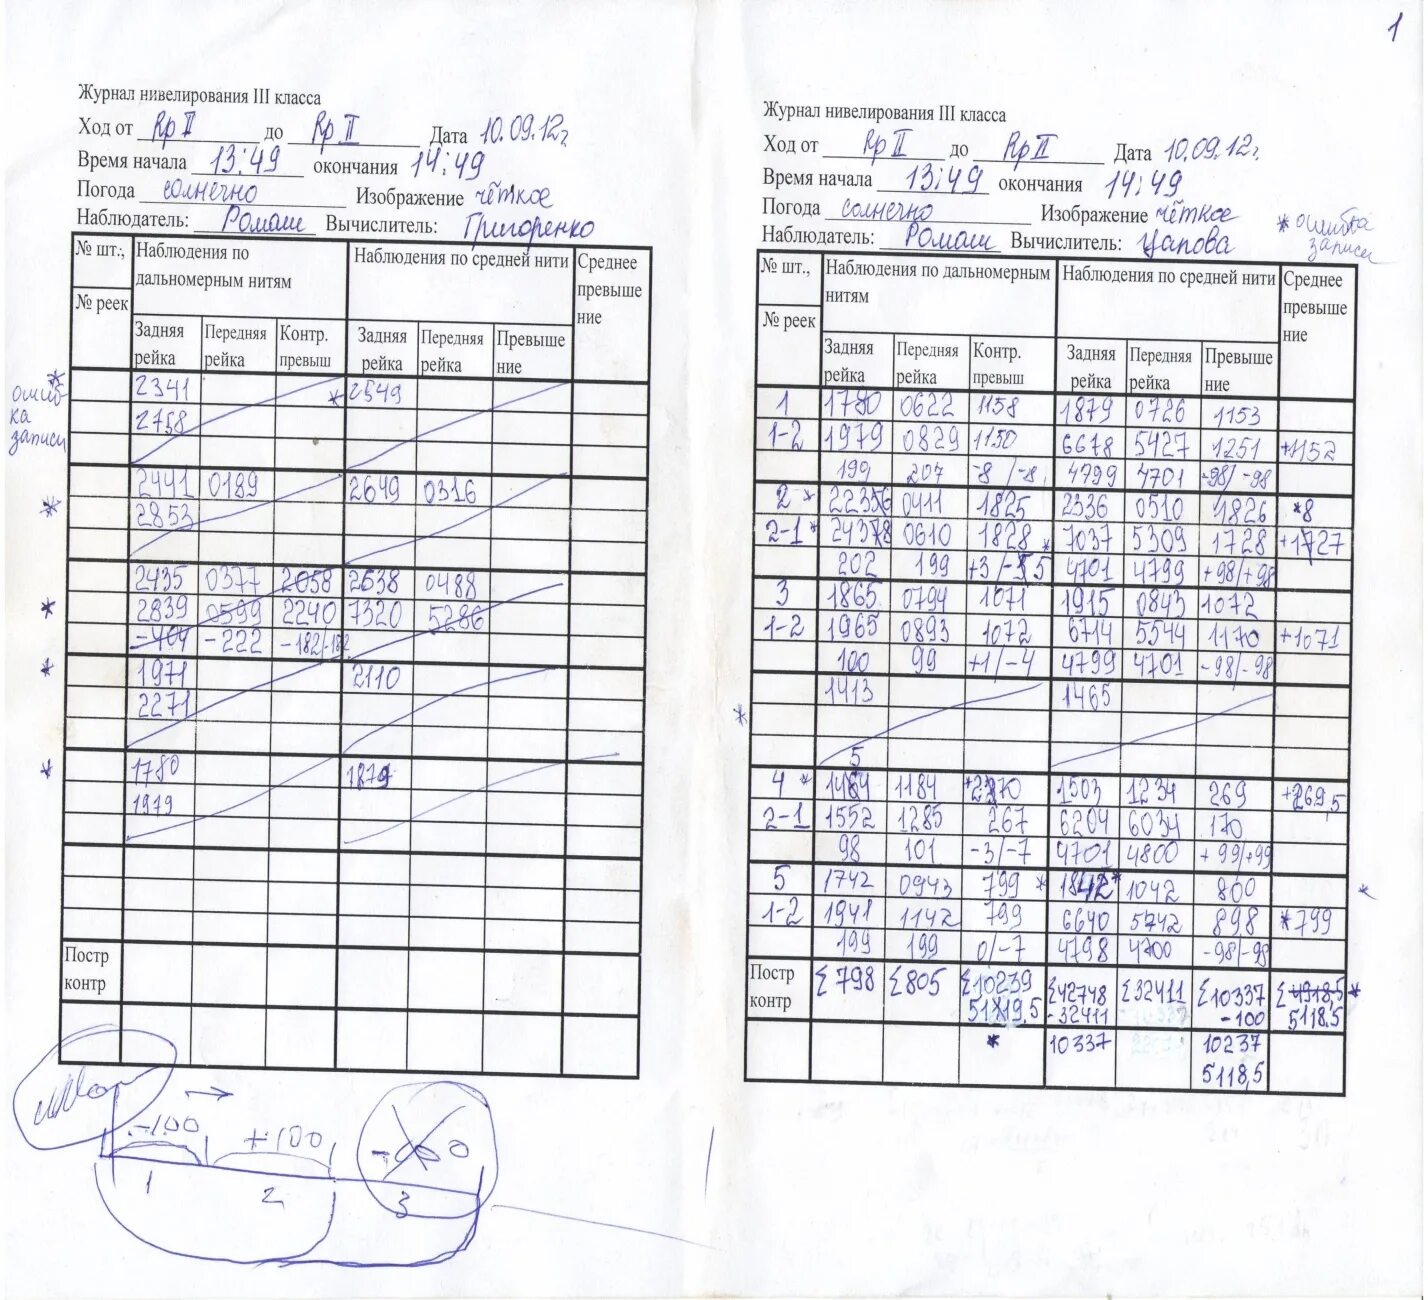 1
Журнал нивелирования III класса
Ход от Rp II до Rp II Дата 10.09.12г.
Время начала 13:49 окончания 14:49
Погода солнечно Изображение чёткое
Наблюдатель: Ромаш Вычислитель: Григоренко
№ шт., Наблюдения по дальномерным нитям Наблюдения по средней нити Среднее превыше ние
№ реек Задняя рейка Передняя рейка Контр. превыш Задняя рейка Передняя рейка Превыше ние
* ошиб-
ка
записи
2341 * 2549
2758
2441 0189 2649 0316
* 2853
2435 0377 2058 2638 0488
* 2839 0599 2240 7320 5286
-404 -222 -182/-182
* 1971 2110
2271
* 1780 1879
1979
Постр
контр
-100 +100
1 2 3
Журнал нивелирования III класса
Ход от Rp II до Rp II Дата 10.09.12г.
Время начала 13:49 окончания 14:49
Погода солнечно Изображение чёткое
* ошибка
записи
Наблюдатель: Ромаш Вычислитель: Цапова
№ шт., Наблюдения по дальномерным нитям Наблюдения по средней нити Среднее превыше ние
№ реек Задняя рейка Передняя рейка Контр. превыш Задняя рейка Передняя рейка Превыше ние
1 1780 0622 1158 1879 0726 1153
1-2 1979 0829 1150 6678 5427 1251 +1152
199 207 -8/-8 4799 4701 -98/-98
2 * 2236 0411 1825 2336 0510 1826 *8
2-1 * 2438 0610 1828 * 7037 5309 1728 +1727
202 199 +3/-5 4701 4799 +98/+98
3 1865 0794 1071 1915 0843 1072
1-2 1965 0893 1072 6714 5544 1170 +1071
100 99 +1/-4 4799 4701 -98/-98
1413 1465
*
4 * 1454 1184 *270 1503 1234 269 +269,5
2-1 1552 1285 267 6204 6034 170
98 101 -3/-7 4701 4800 +99/+99
5 1742 0943 799 * 1842* 1042 800 *
1-2 1941 1142 799 6640 5742 898 *799
199 199 0/-7 4798 4700 -98/-98
Постр контр Σ798 Σ805 Σ10239 Σ42748 Σ32411 Σ10337 Σ4918,5 *
5119,5 -32411 -100 5118,5
* 10337 10237
5118,5